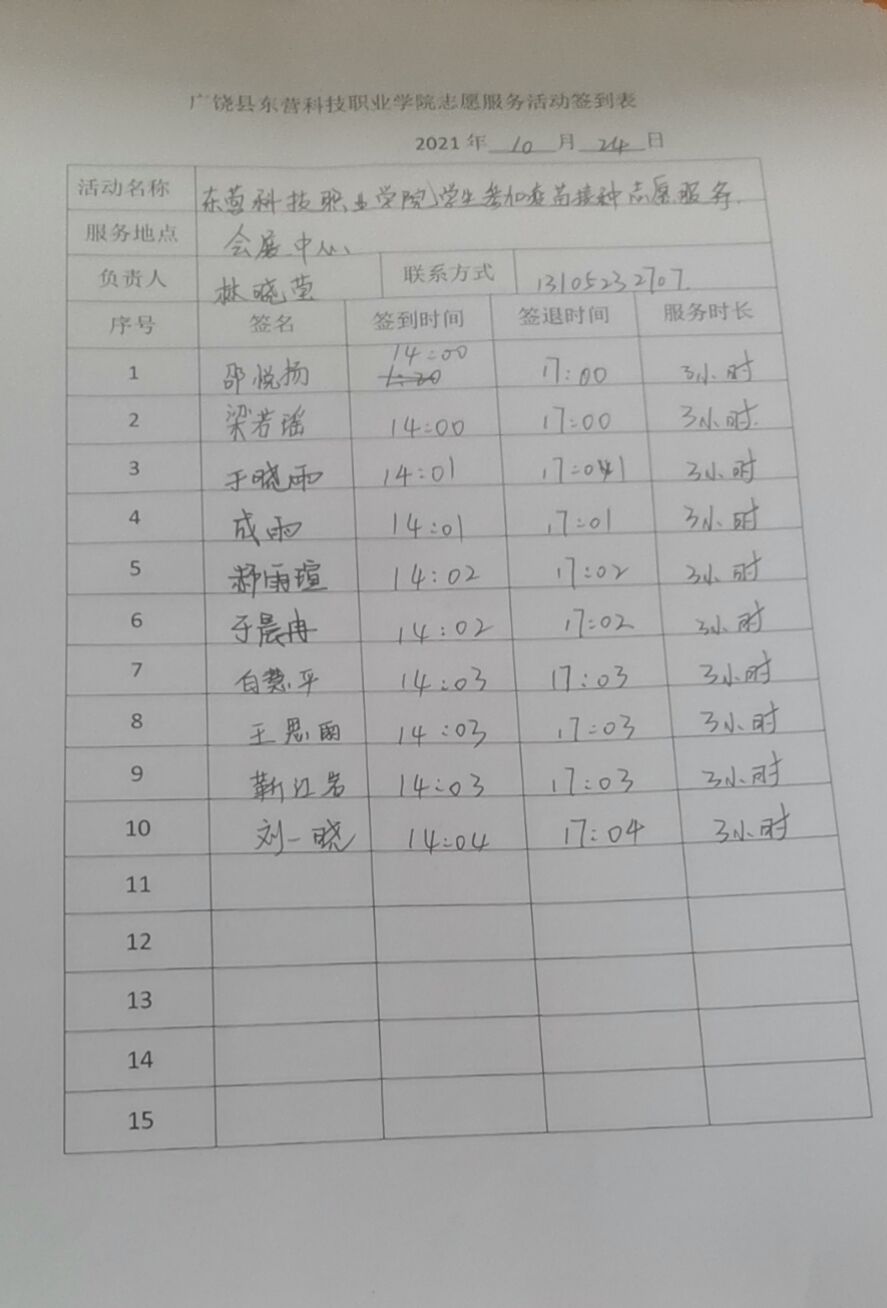 广饶县东营科技职业学院志愿服务活动签到表
2021 年 10 月 24 日
活动名称 东营科技职业学院学生参加疫苗接种志愿服务.
服务地点 会展中心
负责人 林晓莹 联系方式 13105232707.
序号 签名 签到时间 签退时间 服务时长
1 邵悦扬 14:00 17:00 3小时
2 梁若瑶 14:00 17:00 3小时.
3 于晓雨 14:01 17:01 3小时
4 成雨 14:01 17:01 3小时
5 郝雨瑄 14:02 17:02 3小时
6 于晨冉 14:02 17:02 3小时
7 白慧平 14:03 17:03 3小时
8 王思雨 14:03 17:03 3小时
9 靳 14:03 17:03 3小时
10 刘一晓 14:04 17:04 3小时
11
12
13
14
15